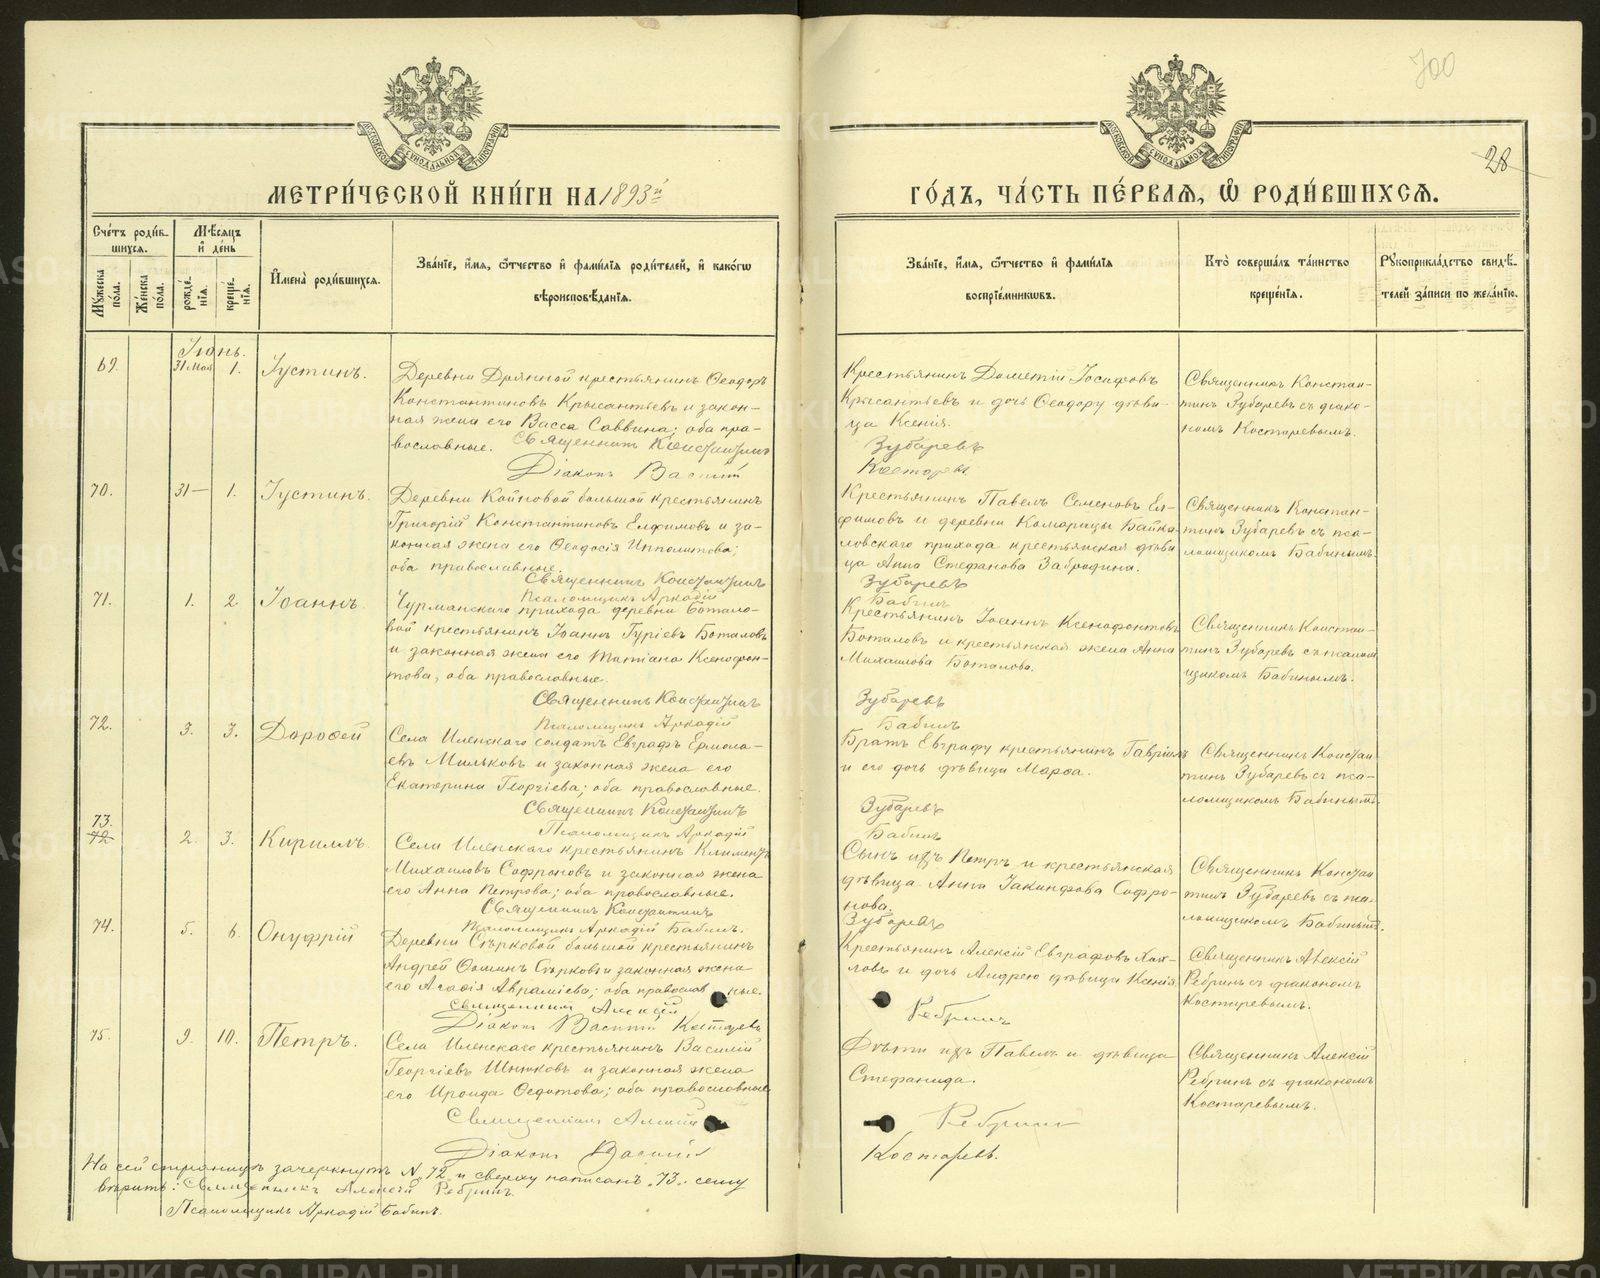 700
28
МОСКОВСКОЙ СУНОДАЛЬНОЙ ТИПОГРАФІИ
МОСКОВСКОЙ СУНОДАЛЬНОЙ ТИПОГРАФІИ
МЕТРИ́ЧЕСКОЙ КНИ́ГИ НА 1893й
ГО́ДЪ, ЧА́СТЬ ПЕ́РВАЯ, Ѡ РОДИ́ВШИХСѦ.
Сче́тъ роди́в-
шихся.
Мѣсяцъ
и де́нь
Му́жеска по́ла.
Же́нска по́ла.
рожде́-нїя.
креще́-нїя.
И҆мена̀ роди́вшихся.
Зва́нїе, и҆́мя, ѻ҆́тчество и҆ фами́лїя роди́телей, и҆ како́гѡ
вѣроисповѣ́данїя.
Зва́нїе, и҆́мя, ѻ҆́тчество и҆ фами́лїя
воспрїе́мникѡвъ.
Кто̀ соверша́лъ та́инство
креще́нїя.
Рꙋкоприкла́дство свидѣ́-
телей за́писи по жела́нїю.
Іюнь.
69.
31 Мая
1.
Іустинъ.
Деревни Дрянной крестьянинъ Ѳеодоръ
Константиновъ Крысантьевъ и закон-
ная жена его Васса Саввина; оба пра-
вославные.
Священникъ Константинъ
Діаконъ Василій
Крестьянинъ Дометій Іосифовъ
Крысантьевъ и дочь Ѳеодору дѣви-
ца Ксенія.
Зубаревъ
Костаревъ
Священникъ Констан-
тинъ Зубаревъ съ діако-
номъ Костаревымъ.
70.
31 —
1.
Іустинъ.
Деревни Койновой большой крестьянинъ
Григорій Константиновъ Елфимовъ и за-
конная жена его Ѳеодосія Ипполитова;
оба православные.
Священникъ Константинъ
Псаломщикъ Аркадій
Крестьянинъ Павелъ Семеновъ Ел-
фимовъ и деревни Комарицы Байка-
ловскаго прихода крестьянская дѣви-
ца Анна Стефанова Забродина.
Зубаревъ
Бабинъ
Священникъ Констан-
тинъ Зубаревъ съ пса-
ломщикомъ Бабинымъ.
71.
1.
2.
Іоаннъ.
Чурманскаго прихода деревни Ботало-
вой крестьянинъ Іоаннъ Гуріевъ Боталовъ
и законная жена его Татіана Ксенофон-
това, оба православные.
Священникъ Константинъ
Псаломщикъ Аркадій
Крестьянинъ Іоаннъ Ксенофонтовъ
Боталовъ и крестьянская жена Анна
Михайлова Боталова.
Зубаревъ
Бабинъ
Священникъ Констан-
тинъ Зубаревъ съ псалом-
щикомъ Бабинымъ.
72.
3.
3.
Дороѳей
Села Иленскаго солдатъ Евграфъ Ермола-
евъ Мильковъ и законная жена его
Екатерина Георгіева; оба православные.
Священникъ Константинъ
Псаломщикъ Аркадій
Братъ Евграфу крестьянинъ Гавріилъ
и его дочь дѣвица Марѳа.
Зубаревъ
Бабинъ
Священникъ Констан-
тинъ Зубаревъ съ пса-
ломщикомъ Бабинымъ.
73.
72
2.
3.
Кириллъ.
Села Иленскаго крестьянинъ Климентъ
Михаиловъ Софроновъ и законная жена
его Анна Петрова; оба православные.
Священникъ Константинъ
Псаломщикъ Аркадій Бабинъ.
Сынъ ихъ Петръ и крестьянская
дѣвица Анна Іакинфова Софро-
нова.
Зубаревъ
Священникъ Констан-
тинъ Зубаревъ съ пса-
ломщикомъ Бабинымъ.
74.
5.
6.
Онуфрій
Деревни Сѣрковой большой крестьянинъ
Андрей Ѳоминъ Сѣрковъ и законная жена
его Агаѳія Авраміева; оба православные.
Священникъ Алексій
Діаконъ Василій Костаревъ
Крестьянинъ Алексій Евграфовъ
ловъ и дочь Андрею дѣвица Ксенія.
Ребринъ
Священникъ Алексій
Ребринъ съ діакономъ
Костаревымъ.
75.
9.
10.
Петръ.
Села Иленскаго крестьянинъ Василій
Георгіевъ Шнюковъ и законная жена
его Ираида Ѳедотова; оба православные.
Священникъ Алексій
Діаконъ Василій
Дѣти ихъ Павелъ и дѣвица
Стефанида.
Ребринъ
Костаревъ.
Священникъ Алексій
Ребринъ съ діакономъ
Костаревымъ.
На сей страницѣ зачеркнутъ № 72 и сверху написанъ „73„ сему
вѣрить: Священникъ Алексій Ребринъ.
Псаломщикъ Аркадій Бабинъ.
METRIKI.GASO-URAL.RU